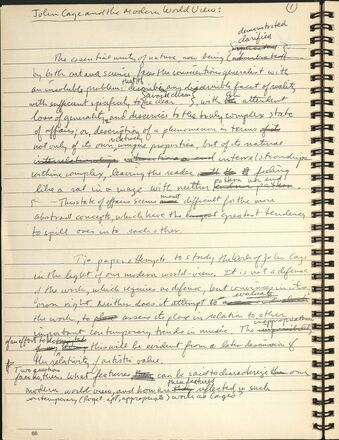 John Cage and the Modern World View:
①
demonstrated
clarified
The essential unity of nature now being
by both art and science, faces the conscientious generalist with
an insoluble problem: describe any discernible facet of reality
with sufficient specificity to be clear, with the attendant
loss of generality and disservice to the truly complex state
of affairs; or, description of a phenomenon in terms
not only of its own unique properties, but of its natural
interrelationships
within complex, leaving the reader feeling
like a rat in a maze with neither pattern nor end.
This state of affairs seems most difficult for the more
abstract concepts, which have the greatest tendency
to spill over into each other.
This paper attempts to study the work of John Cage
in the light of our modern world-view. It is not a defense
of the work, which requires no defense, but convinces in its
own right. Neither does it attempt to evaluate
the work, to assess its place in relation to other
important contemporary trends in music. The inappropriateness
of an effort to do
this will be evident from a later discussion of
the relativity / artistic value.
Two questions
face us, then. What features can be said to characterize our
modern world view, and how are these features reflected in such
contemporary (forget. apt, appropriate) works as Cage's?
66